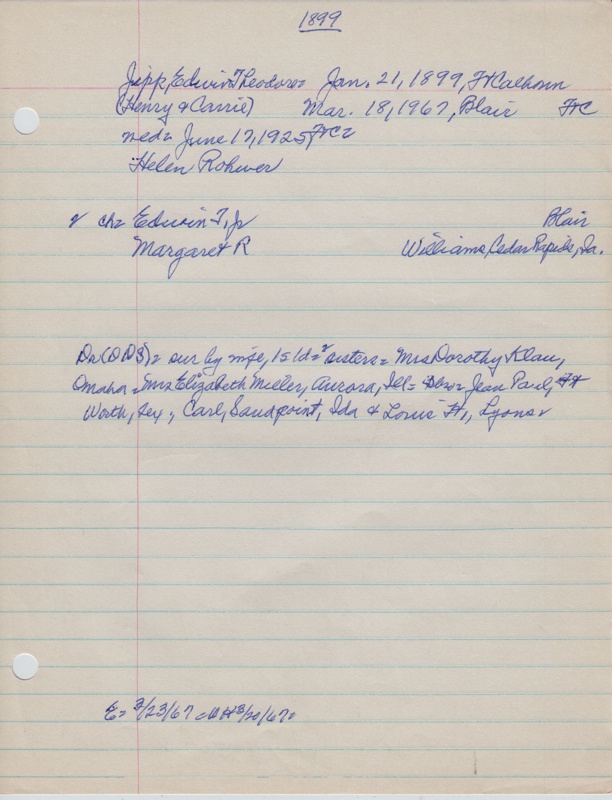 1899
Jipp, Edwin Theodore= Jan. 21, 1899, Ft Calhoun
(Henry & Carrie) Mar. 18, 1967, Blair FtC
med= June 17, 1925, FtC=
Helen Rohwer
2 ch= Edwin T, Jr Blair
Margaret R Williams, Cedar Rapids, Ia.
Dr (DDS)= sur by wife, 1s 1d= 2 sisters= Mrs Dorothy Klau,
Omaha = Mrs Elizabeth Miller, Aurora, Ill= 3bro= Jean Paul, Ft
Worth, Tex., Carl, Sandpoint, Ida & Louis H,, Lyons.
E= 3/23/67 = WH 3/20/67=